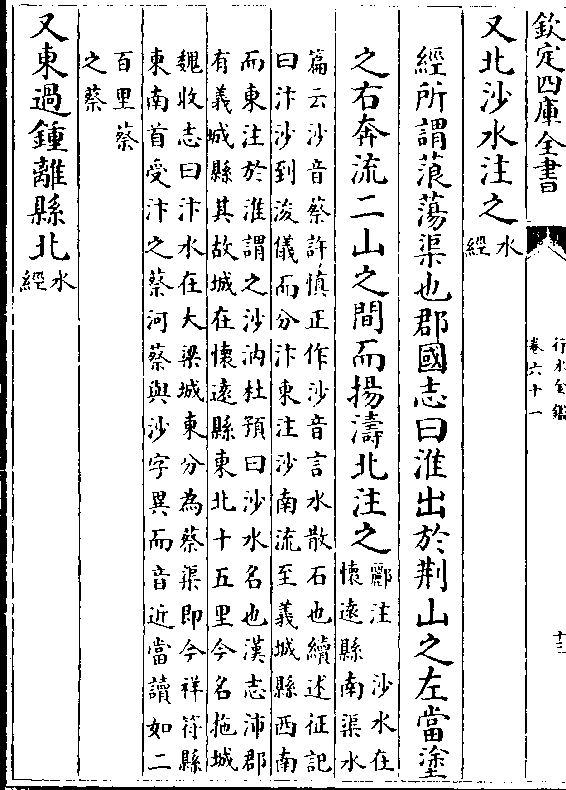 欽定四庫全書
行水金鑑
卷六十一
十三
又北沙水注之水經
經所謂蒗蕩渠也郡國志曰淮出於荆山之左當塗
之右奔流二山之間而揚濤北注之
酈注　沙水在
懷遠縣南渠水
篇云沙音蔡許慎正作沙音言水散石也續述征記
曰汴沙到浚儀而分汴東注沙南流至義城縣西南
而東注於淮謂之沙汭杜預曰沙水名也漢志沛郡
有義城縣其故城在懷遠縣東北十五里今名拖城
魏收志曰汴水在大梁城東分為蔡渠即今祥符縣
東南首受汴之蔡河蔡與沙字異而音近當讀如二
百里蔡
之蔡
又東過鍾離縣北水經